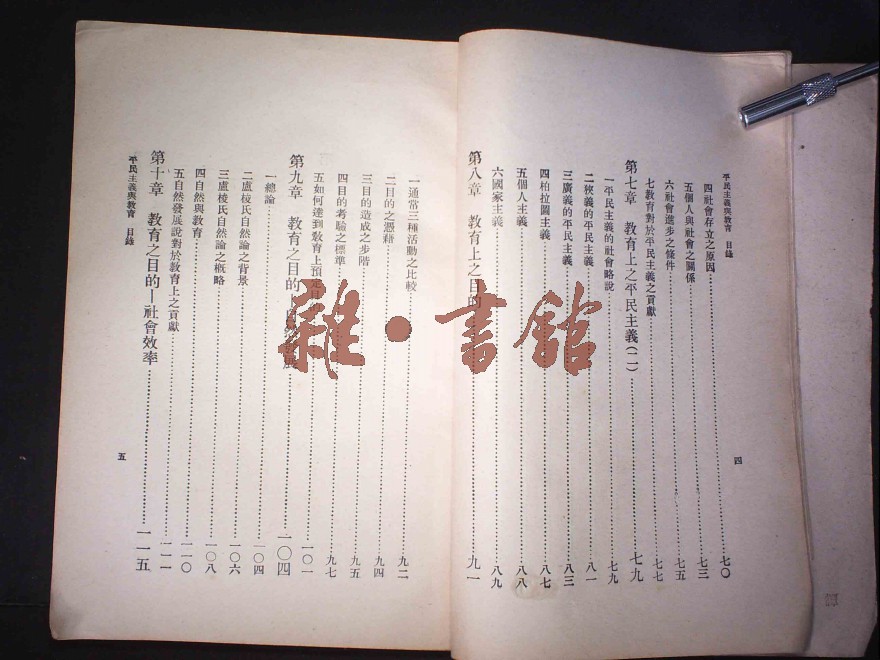 平民主義與教育 目錄
四 社會存立之原因……七〇
五 個人與社會之關係……七三
六 社會進步之條件……七五
七 教育對於平民主義之貢獻……七七
第七章 教育上之平民主義(二)……七九
一 平民主義的社會略說……七九
二 狹義的平民主義……八一
三 廣義的平民主義……八三
四 柏拉圖主義……八七
五 個人主義……八八
六 國家主義……八九
第八章 教育上之目的……九一
四
一 通常三種活動之比較……九二
二 目的之憑藉……九四
三 目的造成之步階……九五
四 目的考驗之標準……九七
五 如何達到教育上預定……一〇一
第九章 教育之目的—自然發展……一〇四
一 總論……一〇四
二 盧梭氏自然論之背景……一〇六
三 盧梭氏自然論之概略……一〇八
四 自然與教育……一一〇
五 自然發展說對於教育上之貢獻……一一一
第十章 教育之目的—社會效率……一一五
平民主義與教育 目錄
五
雜·書館